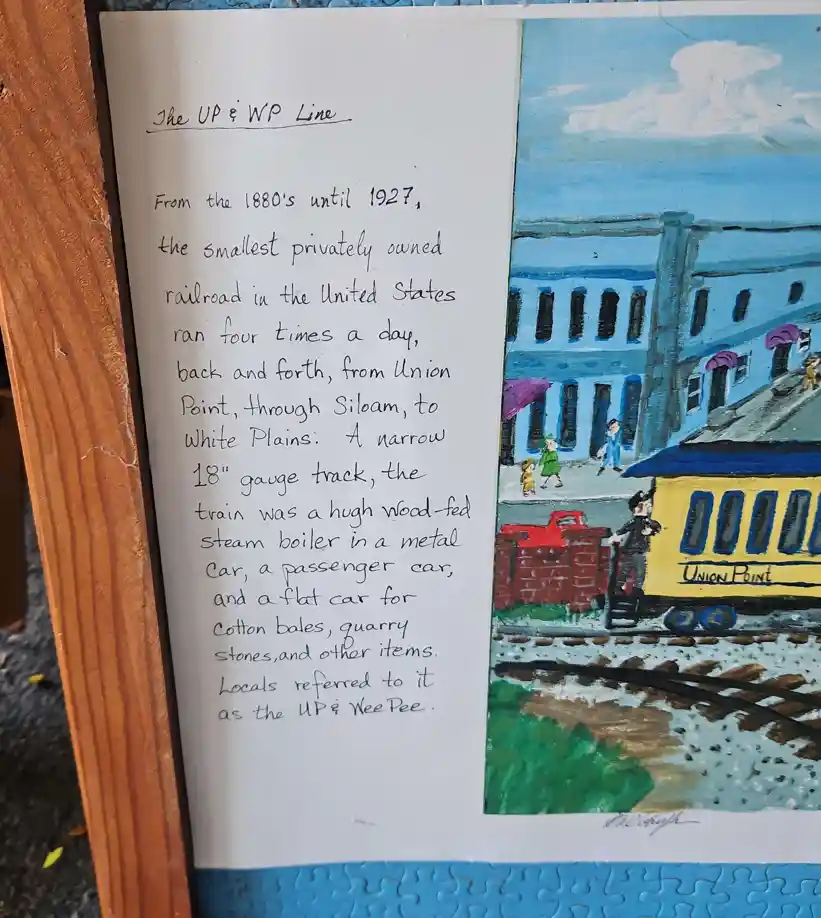 The UP & WP Line
From the 1880's until 1927,
the smallest privately owned
railroad in the United States
ran four times a day,
back and forth, from Union
Point, through Siloam, to
White Plains. A narrow
18" gauge track, the
train was a hugh wood-fed
steam boiler in a metal
car, a passenger car,
and a flat car for
cotton bales, quarry
stones, and other items.
Locals referred to it
as the UP & Wee Pee.
UNION POINT